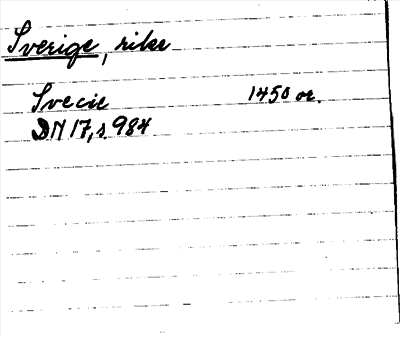 Sverige, rike
Svecie 1450 or.
DN 17, s. 984